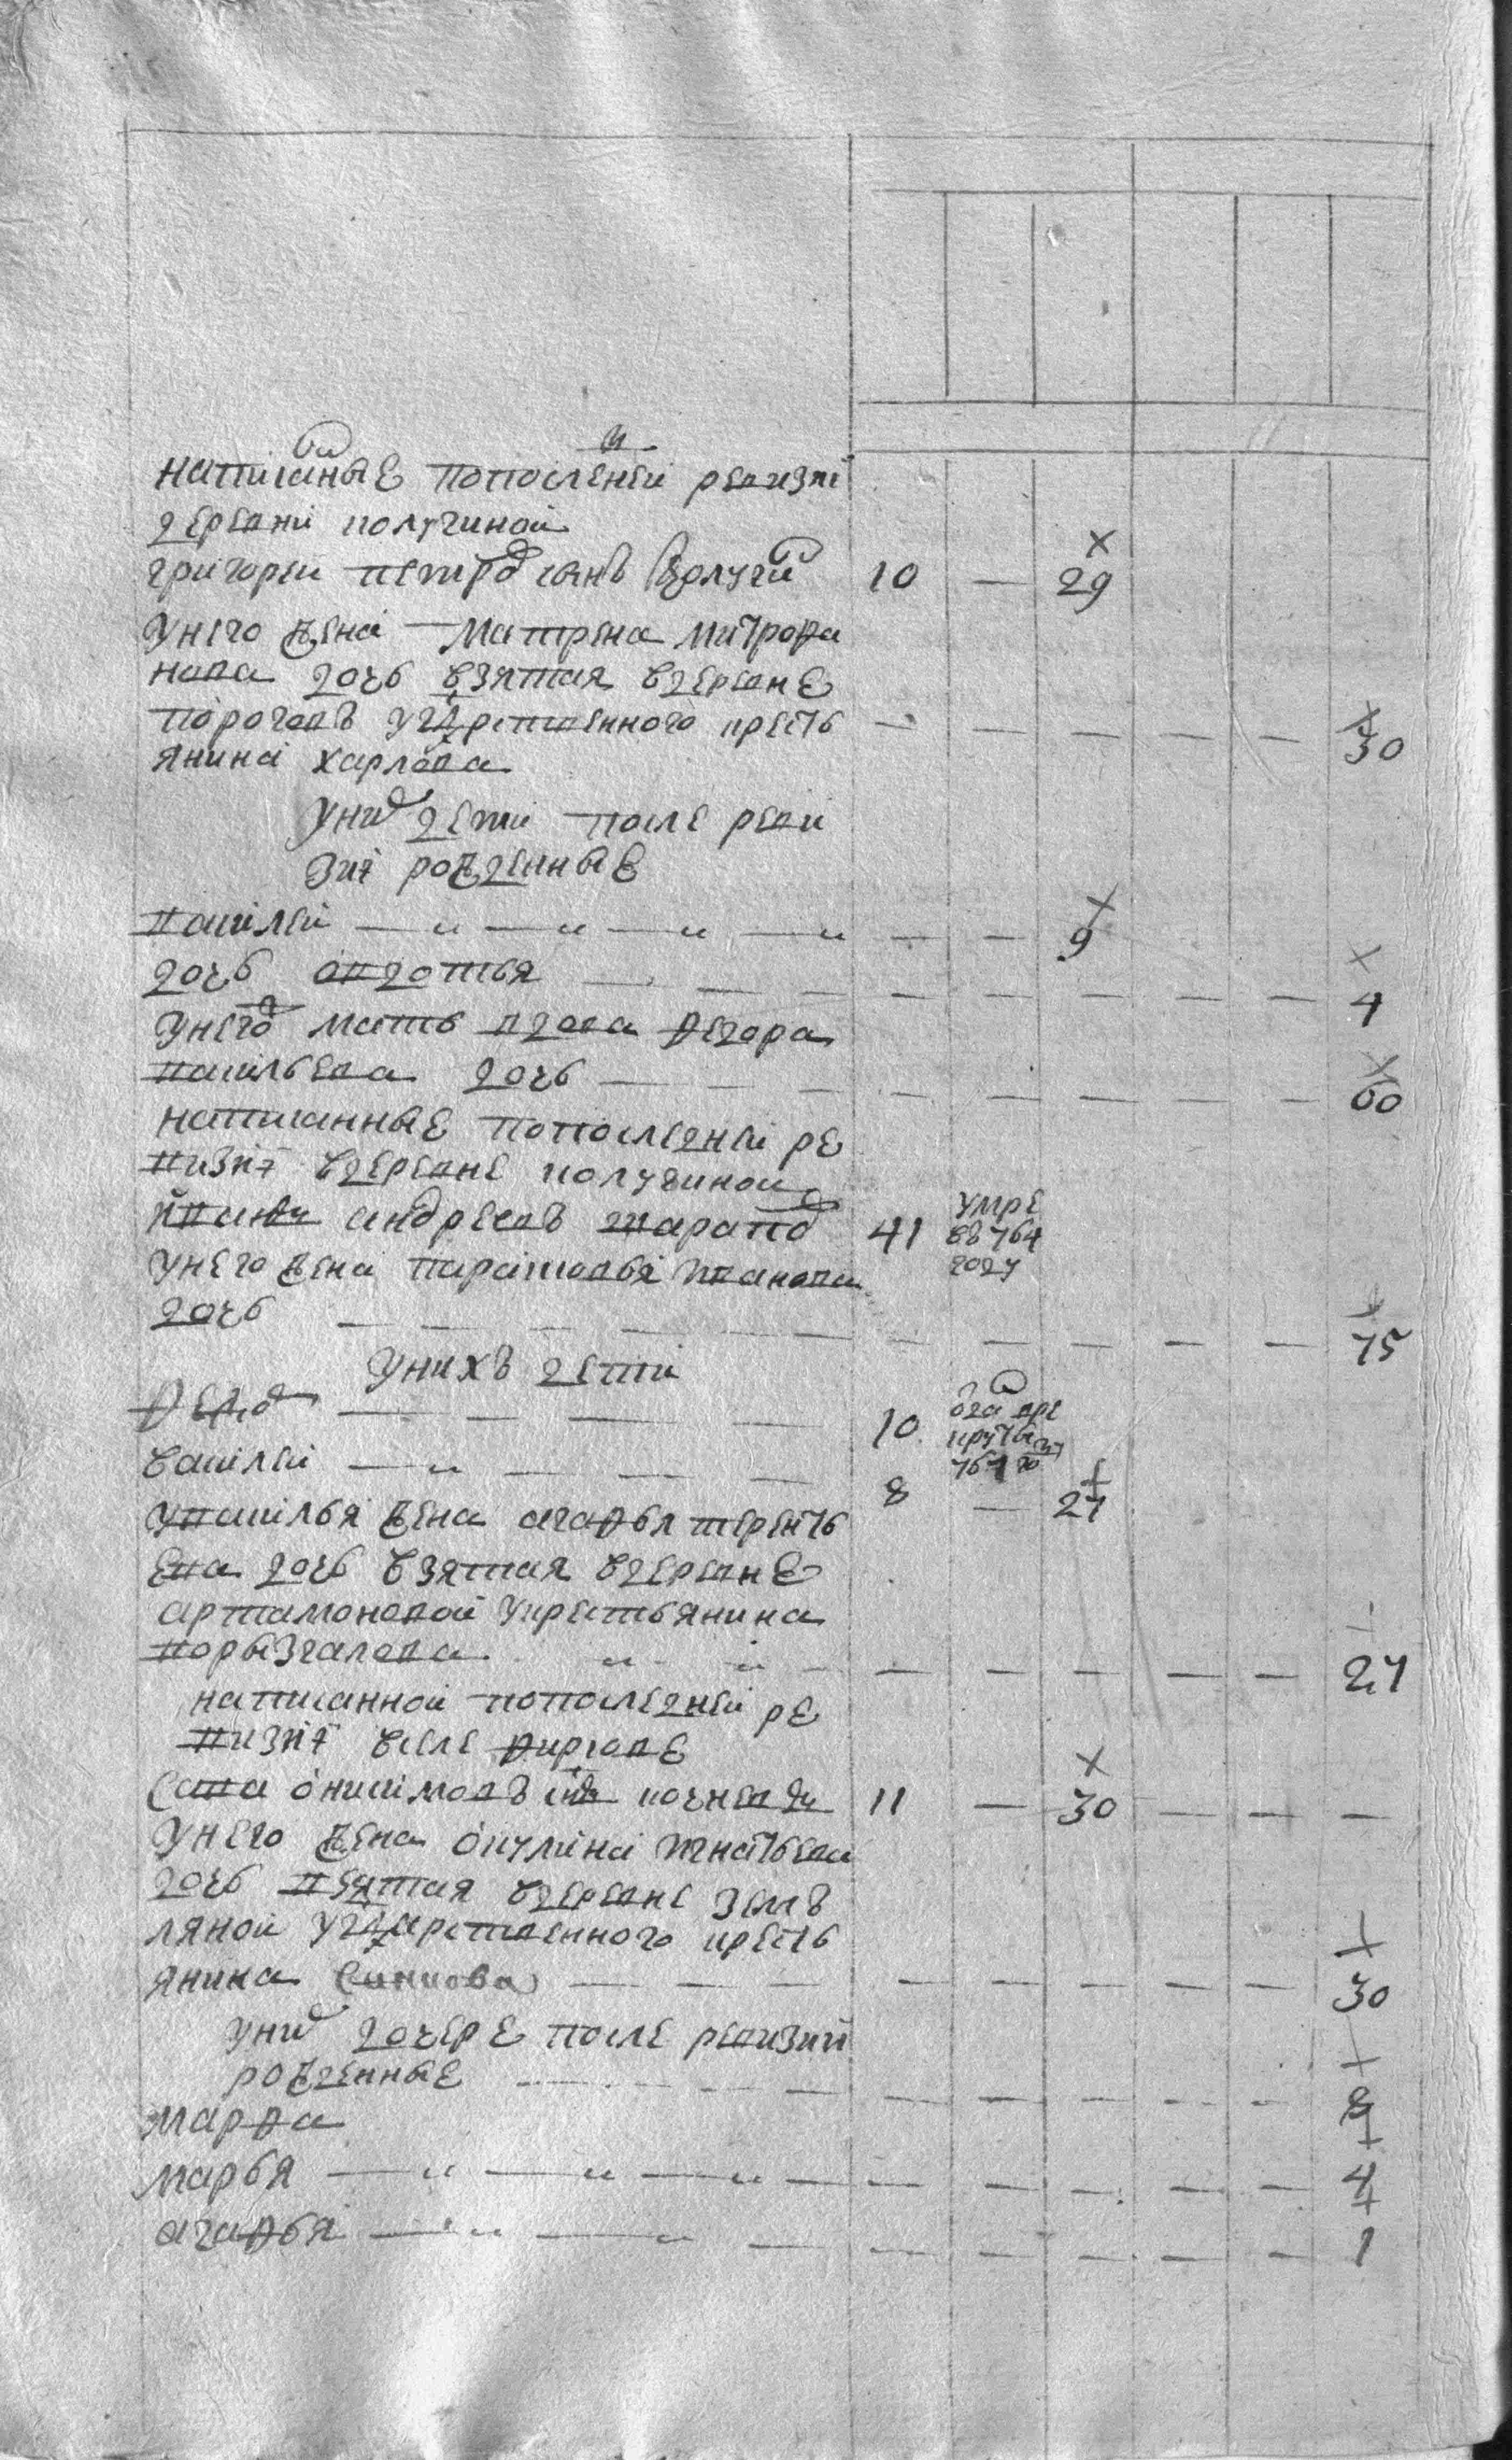 написаные попоследнеи ревизиі
деревни получиной
григореи петров сынъ 10 — 29
унего жена матрена митрофа
нова дочь взятая вдеревне
пороговъ угдрственного кресть
янина харлова — — — — — 30
уних дети после реви
зиі рожденные
василеи — — — 9
дочь авдотья — — — — — — 4
унегож мать вдова федора
васильева дочь — — — — — — 60
написанные попоследнеи ре
визиі вдеревне получиной
иван андреевъ 41 умре въ 764 году
унего жена парасковья иванова
дочь — — — — — — 75
унихъ дети
федор — — — — 10 767
василеи — — — — 8 — 27
увасилья жена агафья теренть
ева дочь взятая вдеревне
артамоновой укрестьянина
порызгалова — — — — — — 27
написанной попоследнеи ре
визиі вселе фирсове
сава онисимовъ снъ кочнев 11 — 30 — — —
унего жена окулина игнатьева
дочь взятая вдеревне земъ
ляной угдарственного кресть
янина синцова — — — — — — 30
уних дочере после ревизии
рожденные — — — — — — 8
марфа
марья — — — — — — 4
агафья — — — — — — 1